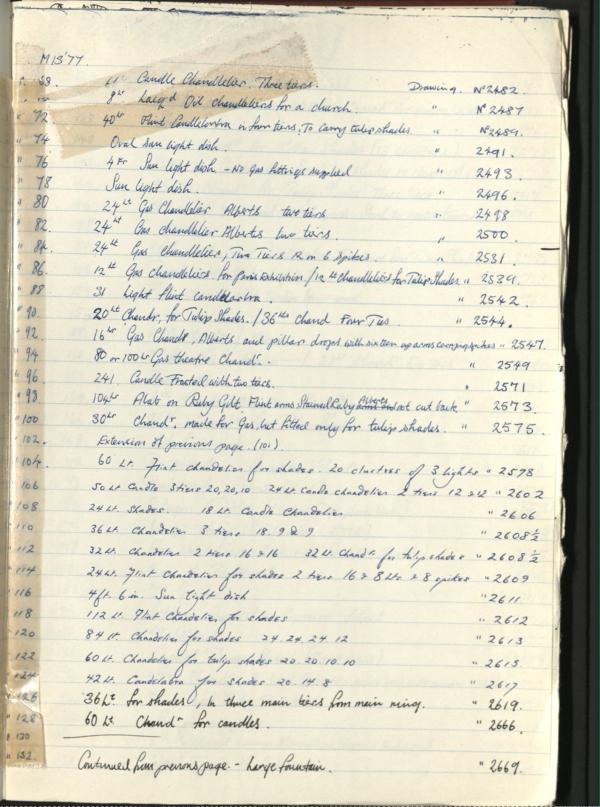 M 13 '77.
68 Lt Candle Chandelier. Three tiers. Drawing. No 2482.
8 Lt Lacq'd Oil chandeliers for a church. " No 2487
" 72 40 Lt Flint Candelabra in four tiers, To carry tulip shades. " No 2489.
" 74 Oval sun light dish. " 2491.
" 76 4 Ft Sun light dish - No Gas fittings supplied " 2493.
" 78 Sun light dish. " 2496.
" 80 24 Lt Gas Chandelier Alberts two tiers " 2498
" 82. 24 Lt Gas chandelier Alberts two tiers. " 2500.
" 84. 24 Lt Gas Chandelier, Two Tiers 12 on 6 spikes. " 2531.
" 86. 12 Lt Gas chandeliers. for Paris Exhibition / 12 Lt Chandeliers for Tulip Shades " 2539.
" 88 31 Light Flint candelabra. " 2542.
" 90. 20 Lt Chandr, for Tulip Shades. / 36 Lts Chand Four Ties. " 2544.
" 92. 16 Lt Gas Chandr, Alberts and pillar drops with sixteen up arms carrying spikes " 2547.
" 94 80 or 100 Lt Gas theatre Chandr. " 2549
" 96 241 Candle Frosted with two tiers. " 2571
" 98 104 Lt Alab on Ruby Gilt Flint arms Stained Ruby Alberts cut back " 2573.
" 100 30 Lt Chandr. made for Gas, but fitted only for tulip shades. " 2575.
" 102. Extension of previous page. (101).
" 104. 60 Lt. Flint chandelier for shades. 20 clusters of 3 lights " 2578
" 106 50 Lt. Candle 3 tiers 20, 20, 10 24 Lt. Candle chandelier 2 tiers 12 & 12 " 2602
" 108 24 Lt. Shades. 18 Lt. Candle Chandelier " 2606
" 110 36 Lt. Chandelier 3 tiers 18. 9 & 9 " 2608 ½
" 112 32 Lt. Chandelier 2 tiers 16 & 16 32 Lt. Chandr for tulip shades " 2608 ½
" 114 24 Lt. Flint Chandelier for shades 2 tiers 16 & 8 Lts & 8 spikes " 2609
" 116 4 ft. 6 in. Sun Light dish " 2611
" 118 112 Lt. Flint Chandelier for shades " 2612
" 120 84 Lt. Chandelier for shades 24. 24. 24. 12 " 2613
122 60 Lt. Chandelier for tulip shades 20. 20. 10. 10 " 2615.
" 124 42 Lt. Candelabra for shades 20. 14. 8 " 2617
" 126 36 Lt for shades, In three main tiers from main ring. " 2619.
" 128 60 Lt Chandr for candles. " 2666.
" 130
" 132 Continued from previous page. - Large Fountain. " 2669.